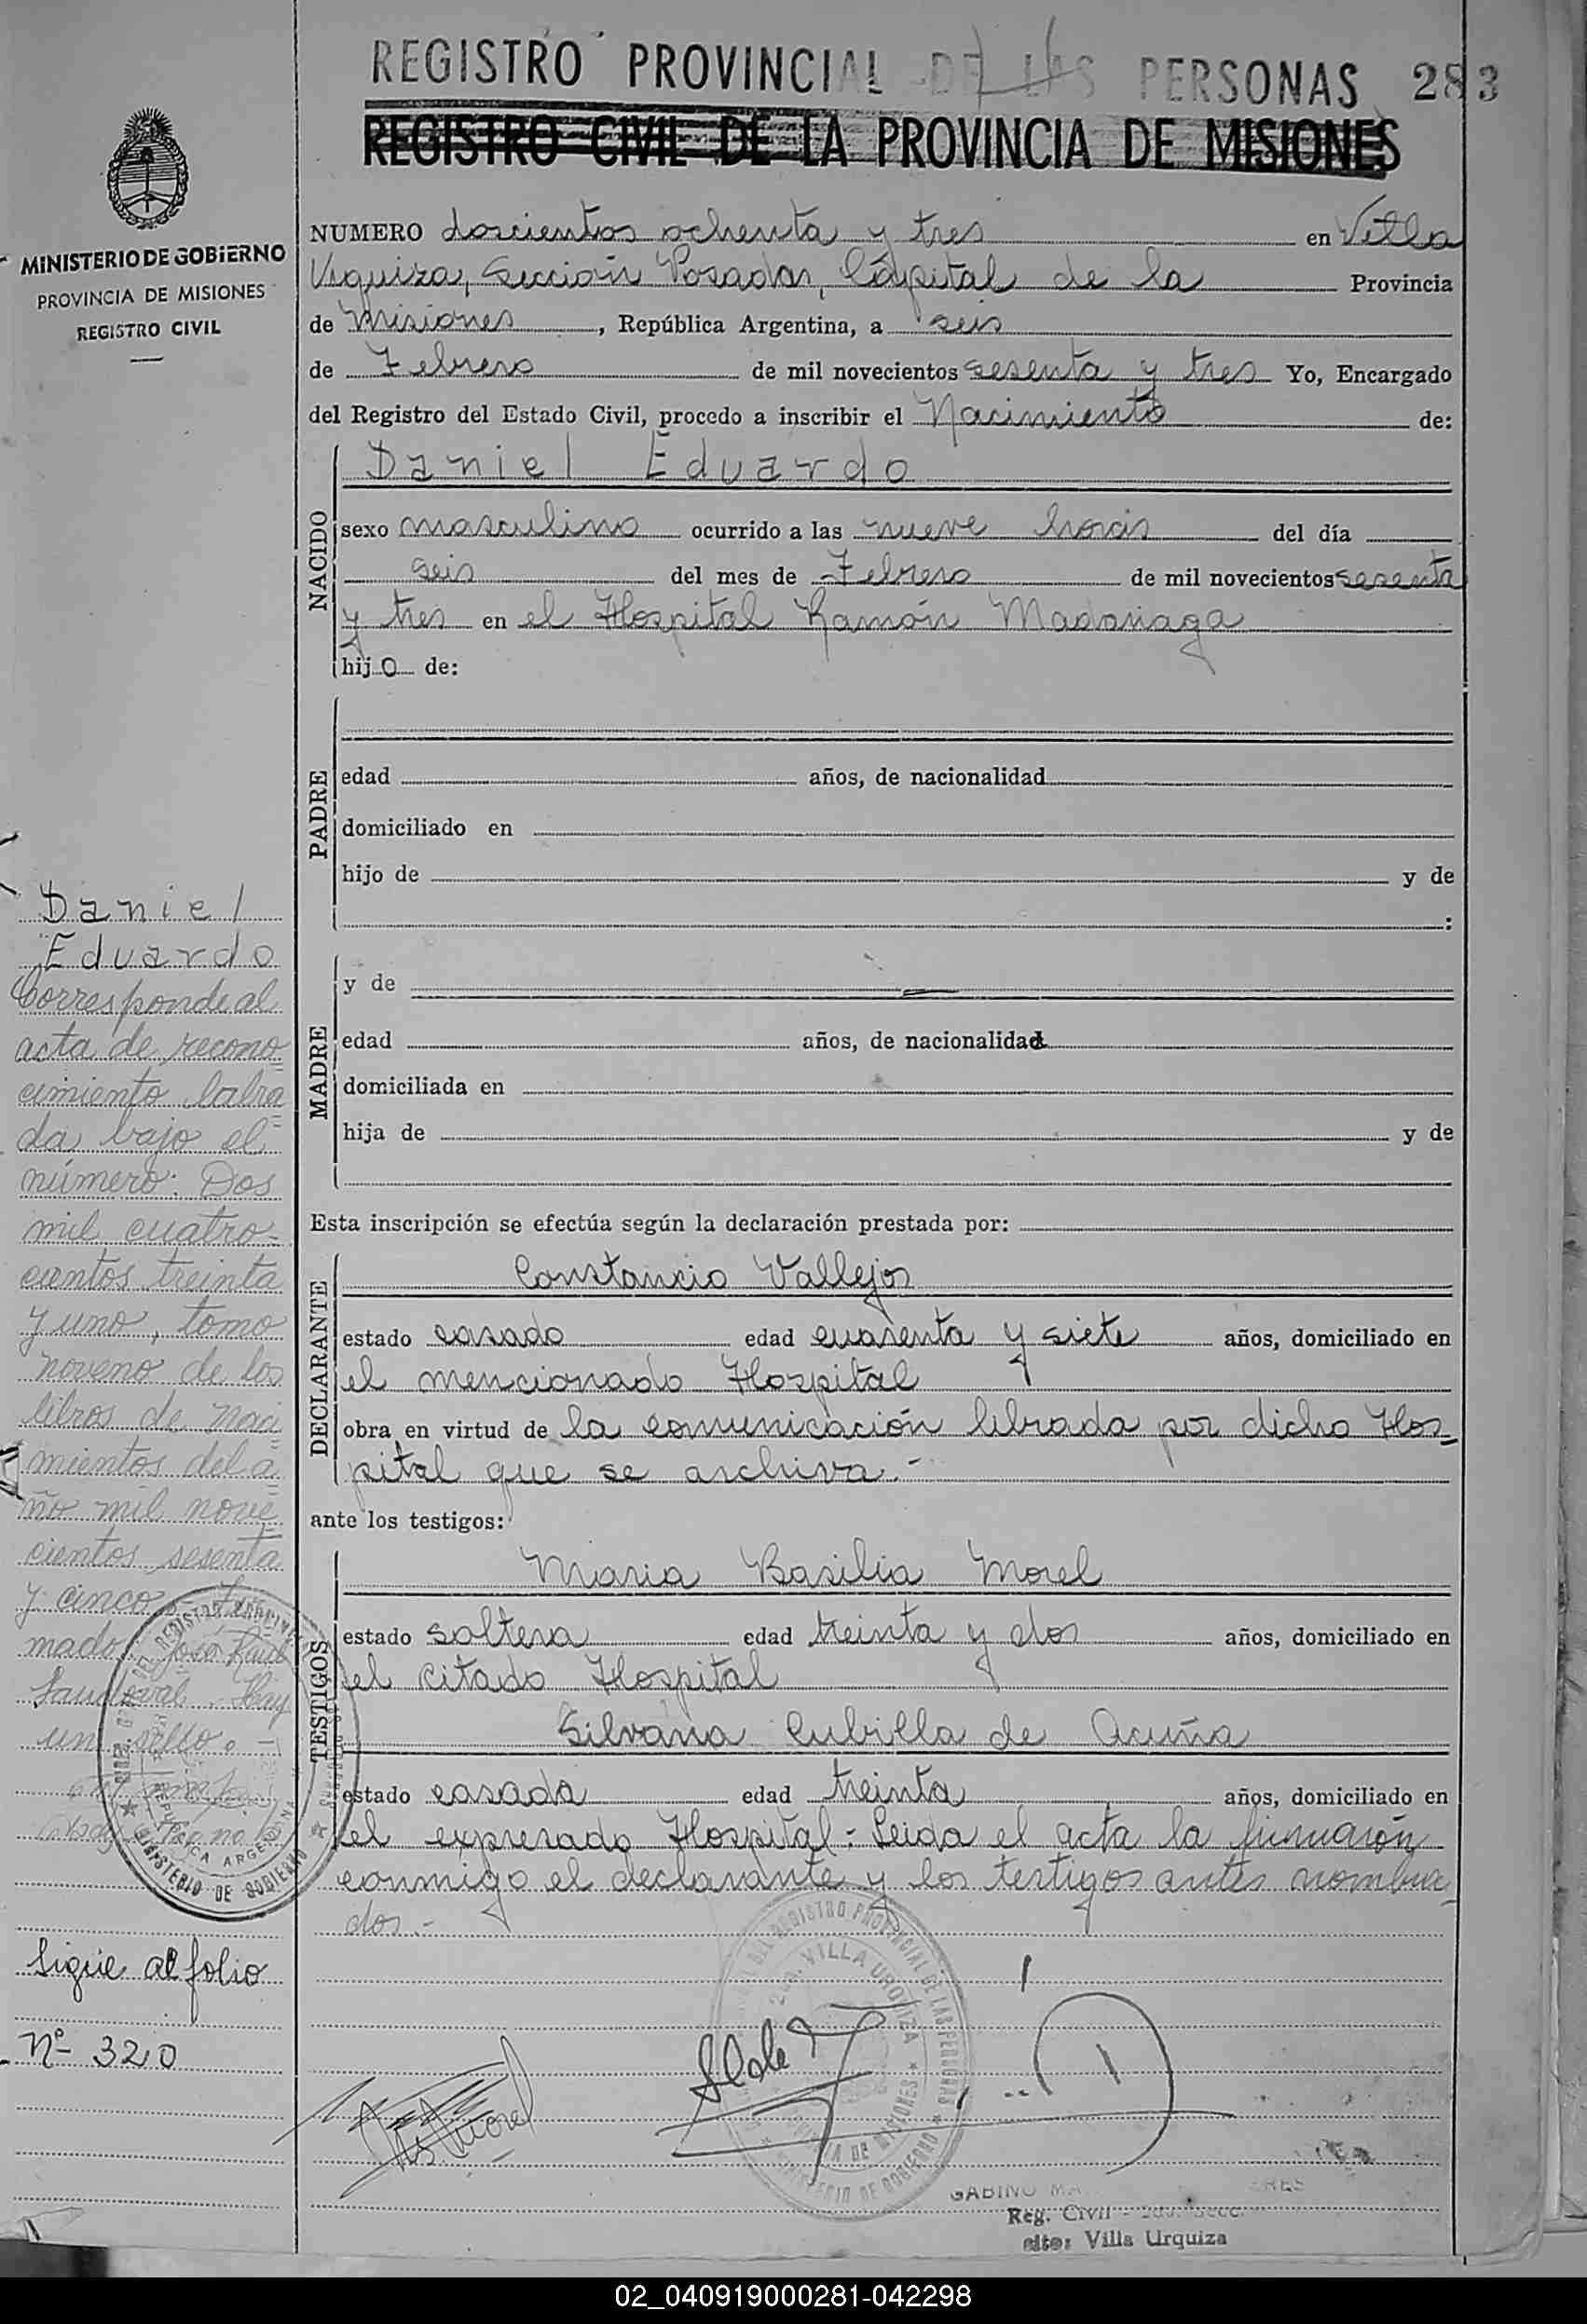 REGISTRO PROVINCIAL DE LAS PERSONAS 283
REGISTRO CIVIL DE LA PROVINCIA DE MISIONES
MINISTERIO DE GOBIERNO
PROVINCIA DE MISIONES
REGISTRO CIVIL
NUMERO doscientos ochenta y tres en Villa
Urquiza, Sección Posadas, Cápital de la Provincia
de Misiones, República Argentina, a seis
de Febrero de mil novecientos sesenta y tres Yo, Encargado
del Registro del Estado Civil, procedo a inscribir el Nacimiento de:
NACIDO
Daniel Eduardo
sexo masculino ocurrido a las nueve horas del día
seis del mes de Febrero de mil novecientos sesenta
y tres en el Hospital Ramón Madariaga
hijo de:
PADRE
edad años, de nacionalidad
domiciliado en
hijo de y de
:
MADRE
y de
edad años, de nacionalidad
domiciliada en
hija de y de
Esta inscripción se efectúa según la declaración prestada por:
DECLARANTE
Constancio Vallejos
estado casado edad cuarenta y siete años, domiciliado en
el mencionado Hospital
obra en virtud de la comunicación librada por dicho Hos-
pital que se archiva.-
ante los testigos:
TESTIGOS
Maria Basilia Morel
estado soltera edad treinta y dos años, domiciliado en
el citado Hospital
Silvana Cubilla de Acuña
estado casada edad treinta años, domiciliado en
el expresado Hospital.- Leida el acta la firmarón
conmigo el declarante y los testigos antes nombra
dos.-
Daniel
Eduardo
Corresponde al
acta de recono=
cimiento labra=
da bajo el
número: Dos
mil cuatro=
cientos treinta
y uno, tomo
noveno de los
libros de naci=
mientos del a=
ño mil nove=
cientos sesenta
y cinco.- Fir
mado: José Raúl
Sandoval. Hay
un sello.-
Sigue al folio
Nº 320
REGISTRO PROVINCIAL DE LAS PERSONAS
VILLA URQUIZA
MINISTERIO DE GOBIERNO
REPUBLICA ARGENTINA
GABINO
Reg. Civil
Villa Urquiza
02_040919000281-042298